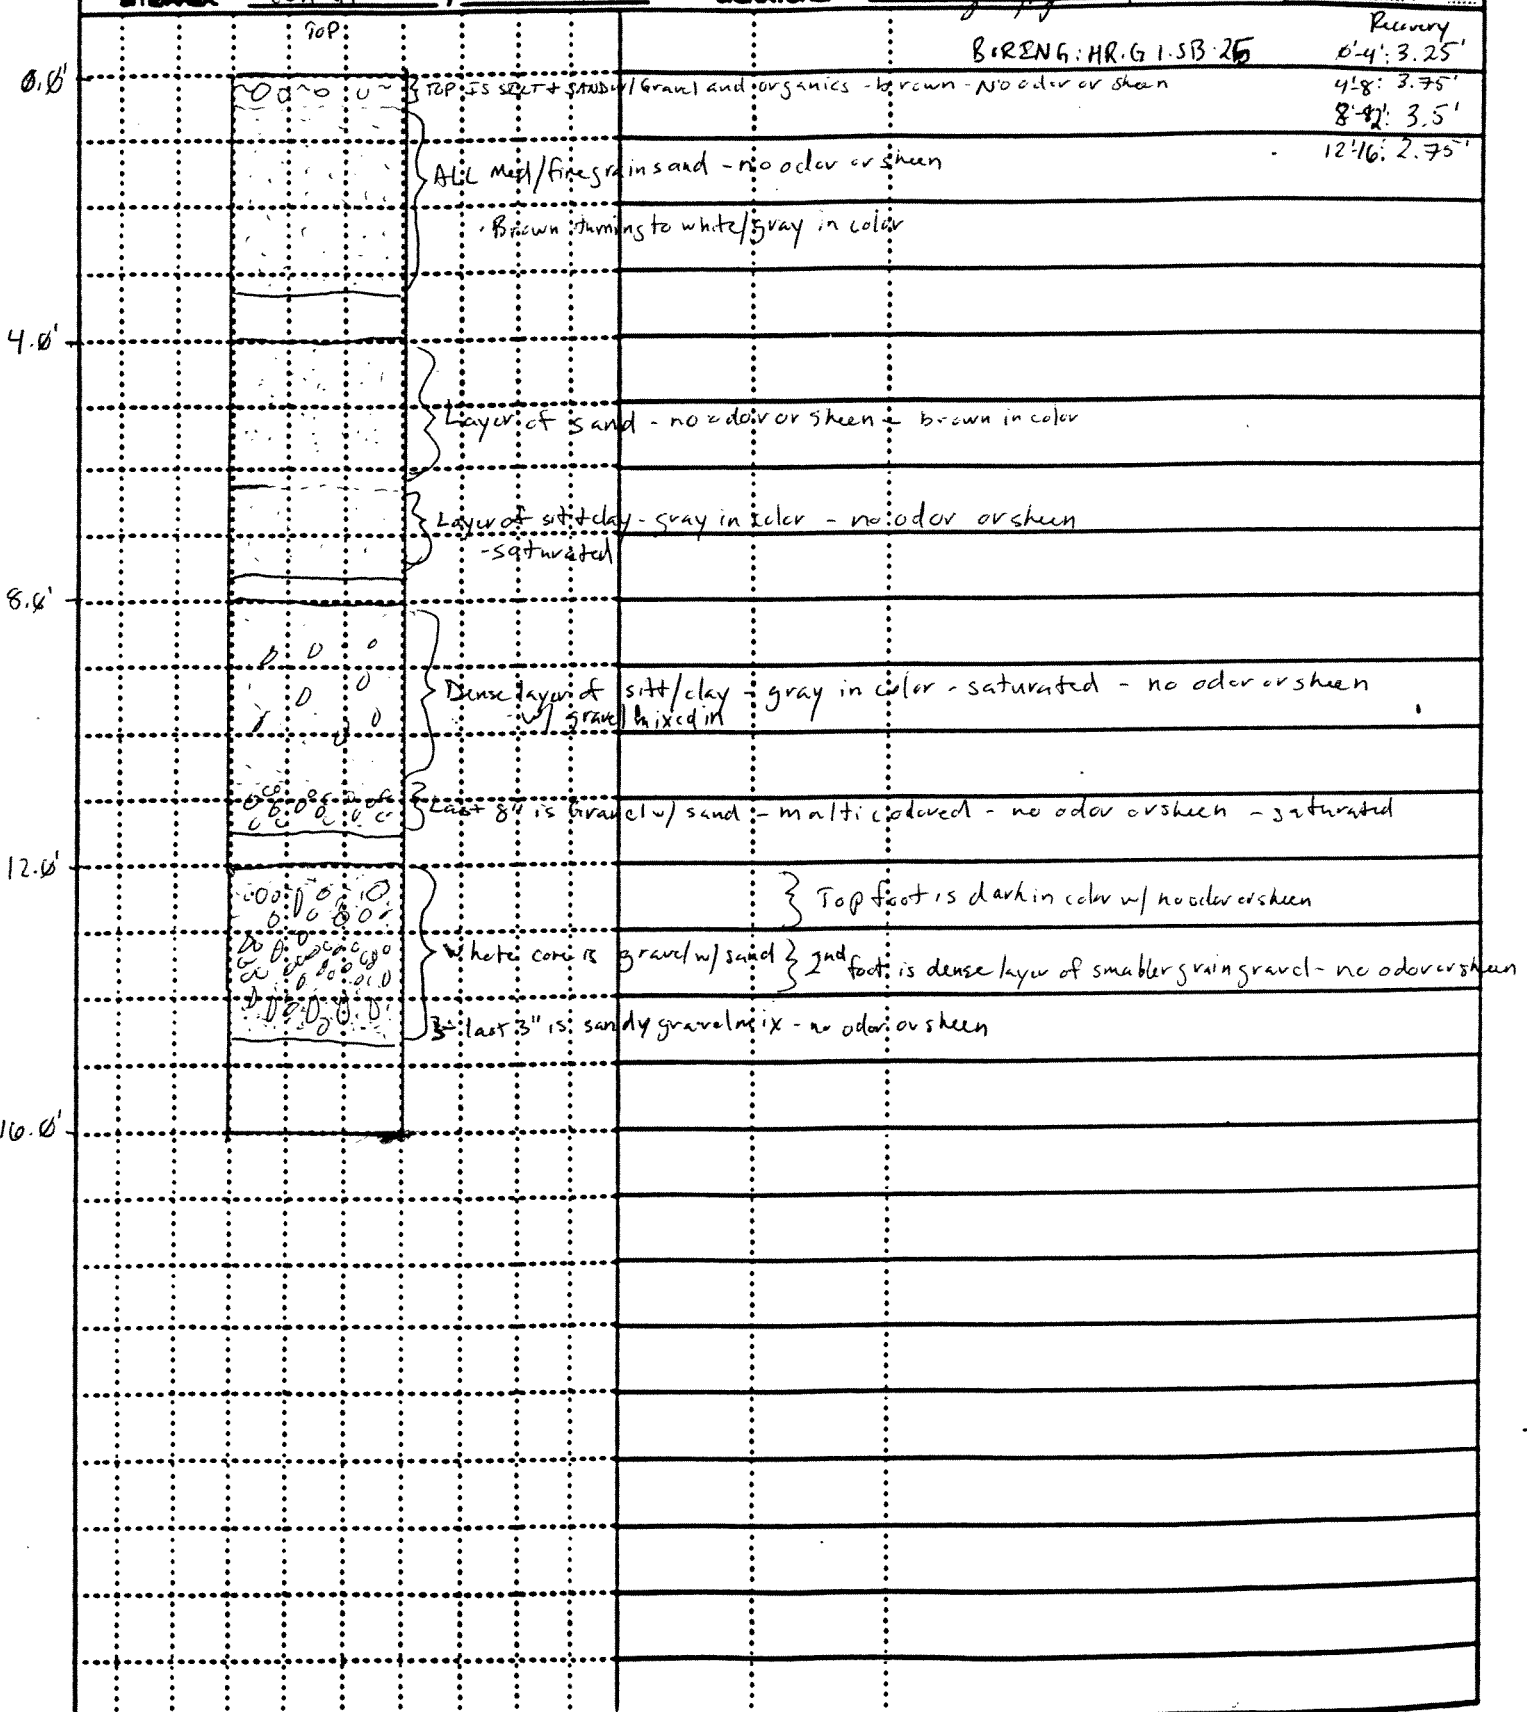 TOP
Recovery
BORENG: HR.G1.SB.25
0'-4': 3.25'
0.0'
TOP IS SILT + SAND w/ Gravel and organics - brown - No odor or sheen
4'-8': 3.75'
8'-12': 3.5'
12'-16': 2.75'
ALL Med/fine grain sand - no odor or sheen
- Brown turning to white/gray in color
4.0'
Layer of sand - no odor or sheen - brown in color
Layer of silt + clay - gray in color - no odor or sheen
- saturated
8.0'
Dense layer of silt/clay - gray in color - saturated - no odor or sheen
- w/ gravel mixed in
Last 8" is Gravel w/ sand - multi colored - no odor or sheen - saturated
12.0'
Top foot is dark in color w/ no odor or sheen
Whole core is gravel w/ sand
2nd foot is dense layer of smaller grain gravel - no odor or sheen
last 3" is sandy gravel mix - no odor or sheen
16.0'